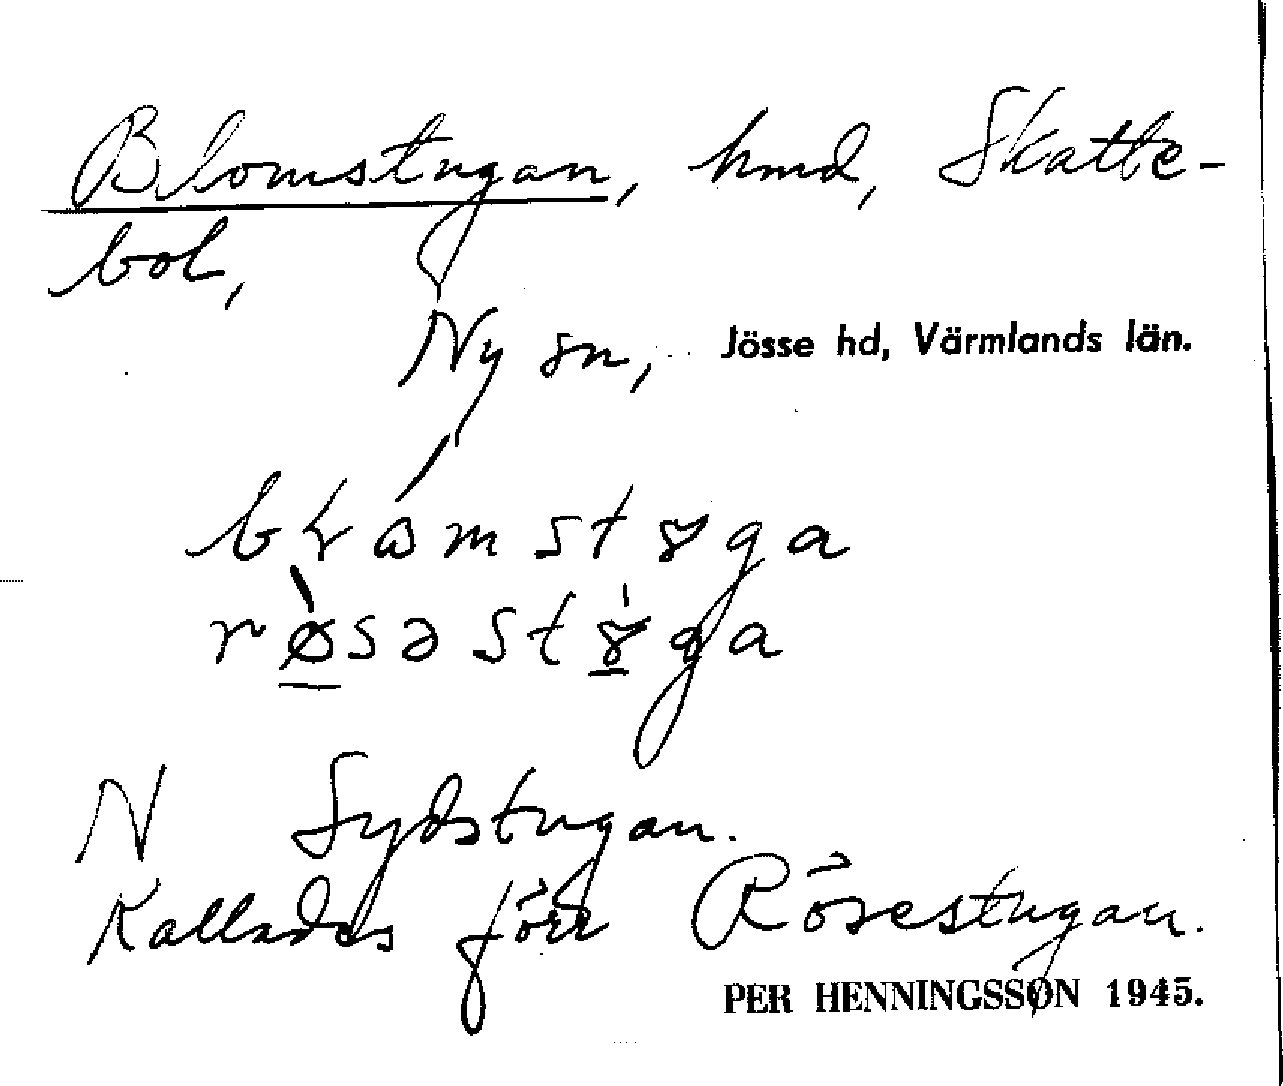 Blomstugan, hmd, Skatte-
bol,
Ny sn, Jösse hd, Värmlands län.
N Sydstugan.
Kallades förr Rösestugan.
PER HENNINGSSON 1945.